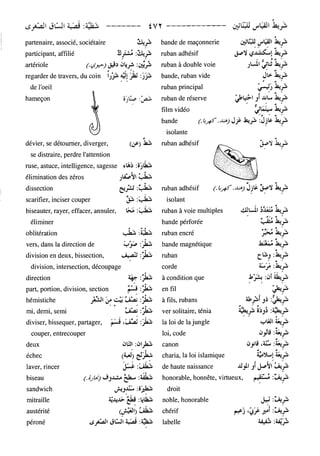 شَظِيَّة: قصبة السّاق الصغرى ٤٧٢ شريط القياس للبنّائين
bande de maçonnerie شريط القياس للبنّائين
ruban adhésif
ruban à double voie
bande, ruban vide شريط خالٍ
ruban principal شريط رئيسيّ
ruban de réserve شريط ساند أو احتياطيّ
film vidéo شريط سينمائيّ
bande شريط عازل
isolante
ruban adhésif شريط لاصق
ruban adhésif شريط لاصق عازل
isolant
ruban à voies multiples شريط متعدّد المسالك
bande perforée شريط مثقّب
ruban encré شريط محبّر
bande magnétique شريط ممغنط
ruban شريط: وشاح
corde شريطة: مرسة
à condition que شريطة أن: بشرط
en fil شريطيّ
à fils, rubans شريطيّ: ذو أشرطة
ver solitaire, ténia شريطيّة: دودة شريطيّة
la loi de la jungle شريعة الغاب
loi, code شريعة: قانون
canon شريعة: سنّة، قانون
charia, la loi islamique شريعة إسلاميّة
de haute naissance شريف الأصل أو المولد
honorable, honnête, vertueux, شريف: مستقيم
droit
noble, honorable شريف: نبيل
chérif شريف: أمير، زعيم
labelle شريفة: شفيفة
partenaire, associé, sociétaire شريك
participant, affilié شريك: مشترك
artériole شُرَيِّن: شريان دقيق
regarder de travers, du coin شزر: نظر إليه شزرًا
de l'oeil
hameçon شصّ: صنّارة
dévier, se détourner, diverger, شطّ
se distraire, perdre l'attention
ruse, astuce, intelligence, sagesse شطارة: دهاء
élimination des zéros شطب الأصفار
dissection شطب: تشريح
scarifier, inciser couper شطب: شقّ
biseauter, rayer, effacer, annuler, شطب: محا
éliminer
oblitération شطبة: شطب
vers, dans la direction de شطر: صوب
division en deux, bissection, شطر: تنصيف
division, intersection, découpage
direction شطر: جهة
part, portion, division, section شطر: قسم
hémistiche شطر: نصف بيت من الشعر
mi, demi, semi شطر: نصف
diviser, bissequer, partager, شطر: نصّف، قسم
couper, entrecouper
deux شطران: اثنان
échec شطرنج (لعبة)
laver, rincer شطف: غسل
biseau شطفة: سطح مشدوف
sandwich شطيرة: سندويش
mitraille شظايا: قطع حديد
austérité شظف (العيش)
péroné شظيّة: قصبة السّاق الصغرى